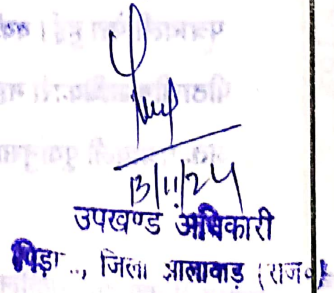 13/11/24
उपखण्ड अधिकारी
पिड़ा.., जिला झालावाड़ (राज०)